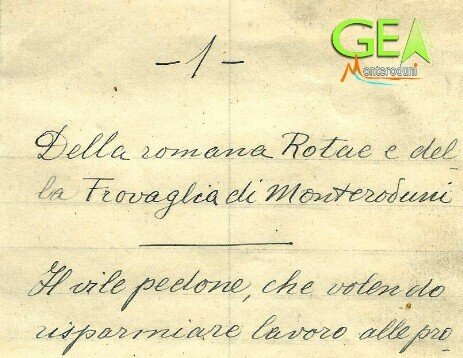 GEA
Monteroduni
- 1 -
Della romana Rotae e del-
la Frovaglia di Monteroduni
Il vile pedone, che volendo
risparmiare lavoro alle pro